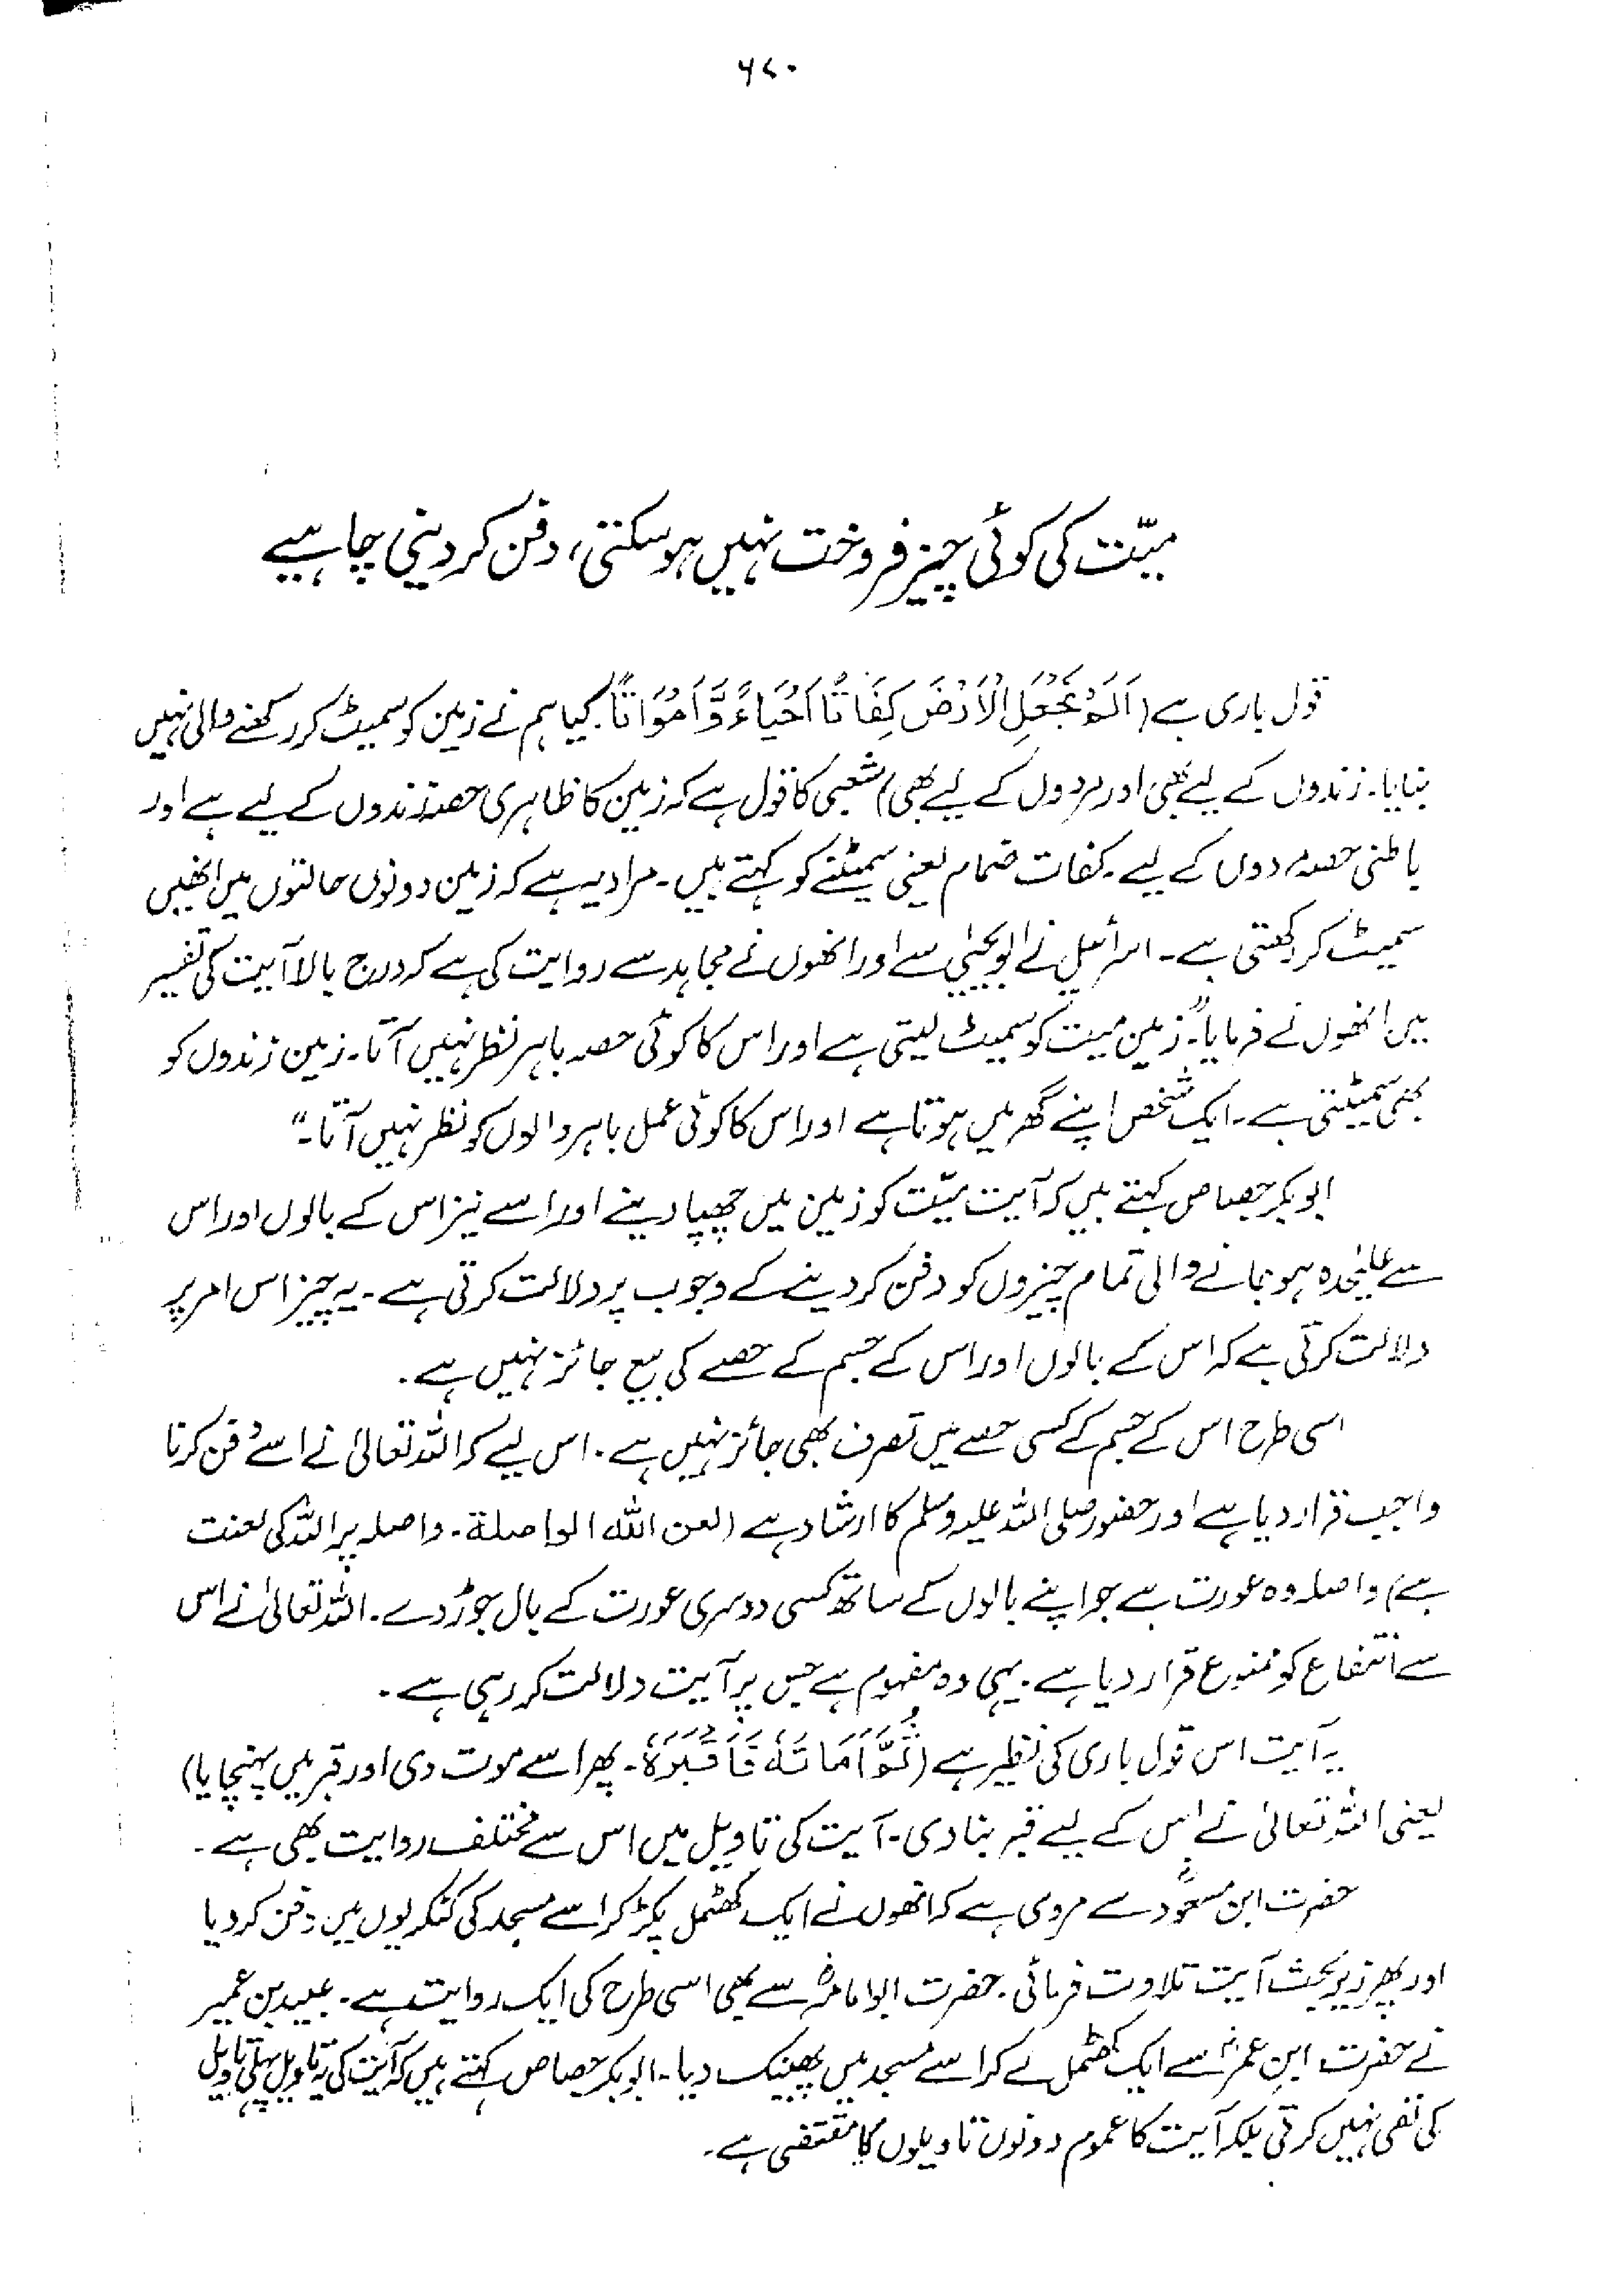 ۶۷۰
میّت کی کوئی چیز فروخت نہیں ہو سکتی، دفن کر دینی چاہیے
قول باری ہے (اَلَمْ نَجْعَلِ الْاَرْضَ كِفَاتًا اَحْيَاءً وَّاَمْوَاتًا. کیا ہم نے زمین کو سمیٹ کر رکھنے والی نہیں
بنایا۔ زندوں کے لیے بھی اور مردوں کے لیے بھی) شعبی کا قول ہے کہ زمین کا ظاہری حصہ زندوں کے لیے ہے اور
باطنی حصہ مردوں کے لیے۔ کفات ضمام یعنی سمیٹنے کو کہتے ہیں۔ مراد یہ ہے کہ زمین دونوں حالتوں میں انھیں
سمیٹ کر رکھتی ہے۔ اسرائیل نے ابو یحییٰ سے اور انھوں نے مجاہد سے روایت کی ہے کہ درج بالا آیت کی تفسیر
میں انھوں نے فرمایا "زمین میت کو سمیٹ لیتی ہے اور اس کا کوئی حصہ باہر نظر نہیں آتا۔ زمین زندوں کو
بھی سمیٹتی ہے۔ ایک شخص اپنے گھر میں ہوتا ہے اور اس کا کوئی عمل باہر والوں کو نظر نہیں آتا۔"
ابو بکر جصاص کہتے ہیں کہ آیت میّت کو زمین میں چھپا دینے اور اسے نیز اس کے بالوں اور اس
سے علیٰحدہ ہو جانے والی تمام چیزوں کو دفن کر دینے کے وجوب پر دلالت کرتی ہے۔ یہ چیز اس امر پر
دلالت کرتی ہے کہ اس کے بالوں اور اس کے جسم کے حصے کی بیع جائز نہیں ہے۔
اسی طرح اس کے جسم کے کسی حصے میں تصرف بھی جائز نہیں ہے۔ اس لیے کہ اللہ تعالیٰ نے اسے دفن کرنا
واجب قرار دیا ہے اور حضور صلی اللہ علیہ وسلم کا ارشاد ہے (لعن اللہ الواصلة۔ واصلہ پر اللہ کی لعنت
ہے) واصلہ وہ عورت ہے جو اپنے بالوں کے ساتھ کسی دوسری عورت کے بال جوڑ دے۔ اللہ تعالیٰ نے اس
سے انتفاع کو ممنوع قرار دیا ہے۔ یہی وہ مفہوم ہے جس پر آیت دلالت کر رہی ہے۔
یہ آیت اس قول باری کی نظیر ہے (ثُمَّ اَمَاتَهٗ فَاَقْبَرَهٗ۔ پھر اسے موت دی اور قبر میں پہنچایا)
یعنی اللہ تعالیٰ نے اس کے لیے قبر بنا دی۔ آیت کی تاویل میں اس سے مختلف روایت بھی ہے۔
حضرت ابن مسعودؓ سے مروی ہے کہ انھوں نے ایک کھٹمل پکڑ کر اسے مسجد کی کنکریوں میں دفن کر دیا
اور پھر زیر بحث آیت تلاوت فرمائی۔ حضرت ابو امامہؓ سے بھی اسی طرح کی ایک روایت ہے۔ عبید بن عمیر
نے حضرت ابن عمرؓ سے ایک کھٹمل لے کر اسے مسجد میں پھینک دیا۔ ابو بکر جصاص کہتے ہیں کہ آیت کی یہ تاویل پہلی تاویل
کی نفی نہیں کرتی بلکہ آیت کا عموم دونوں تاویلوں کا مقتضی ہے۔